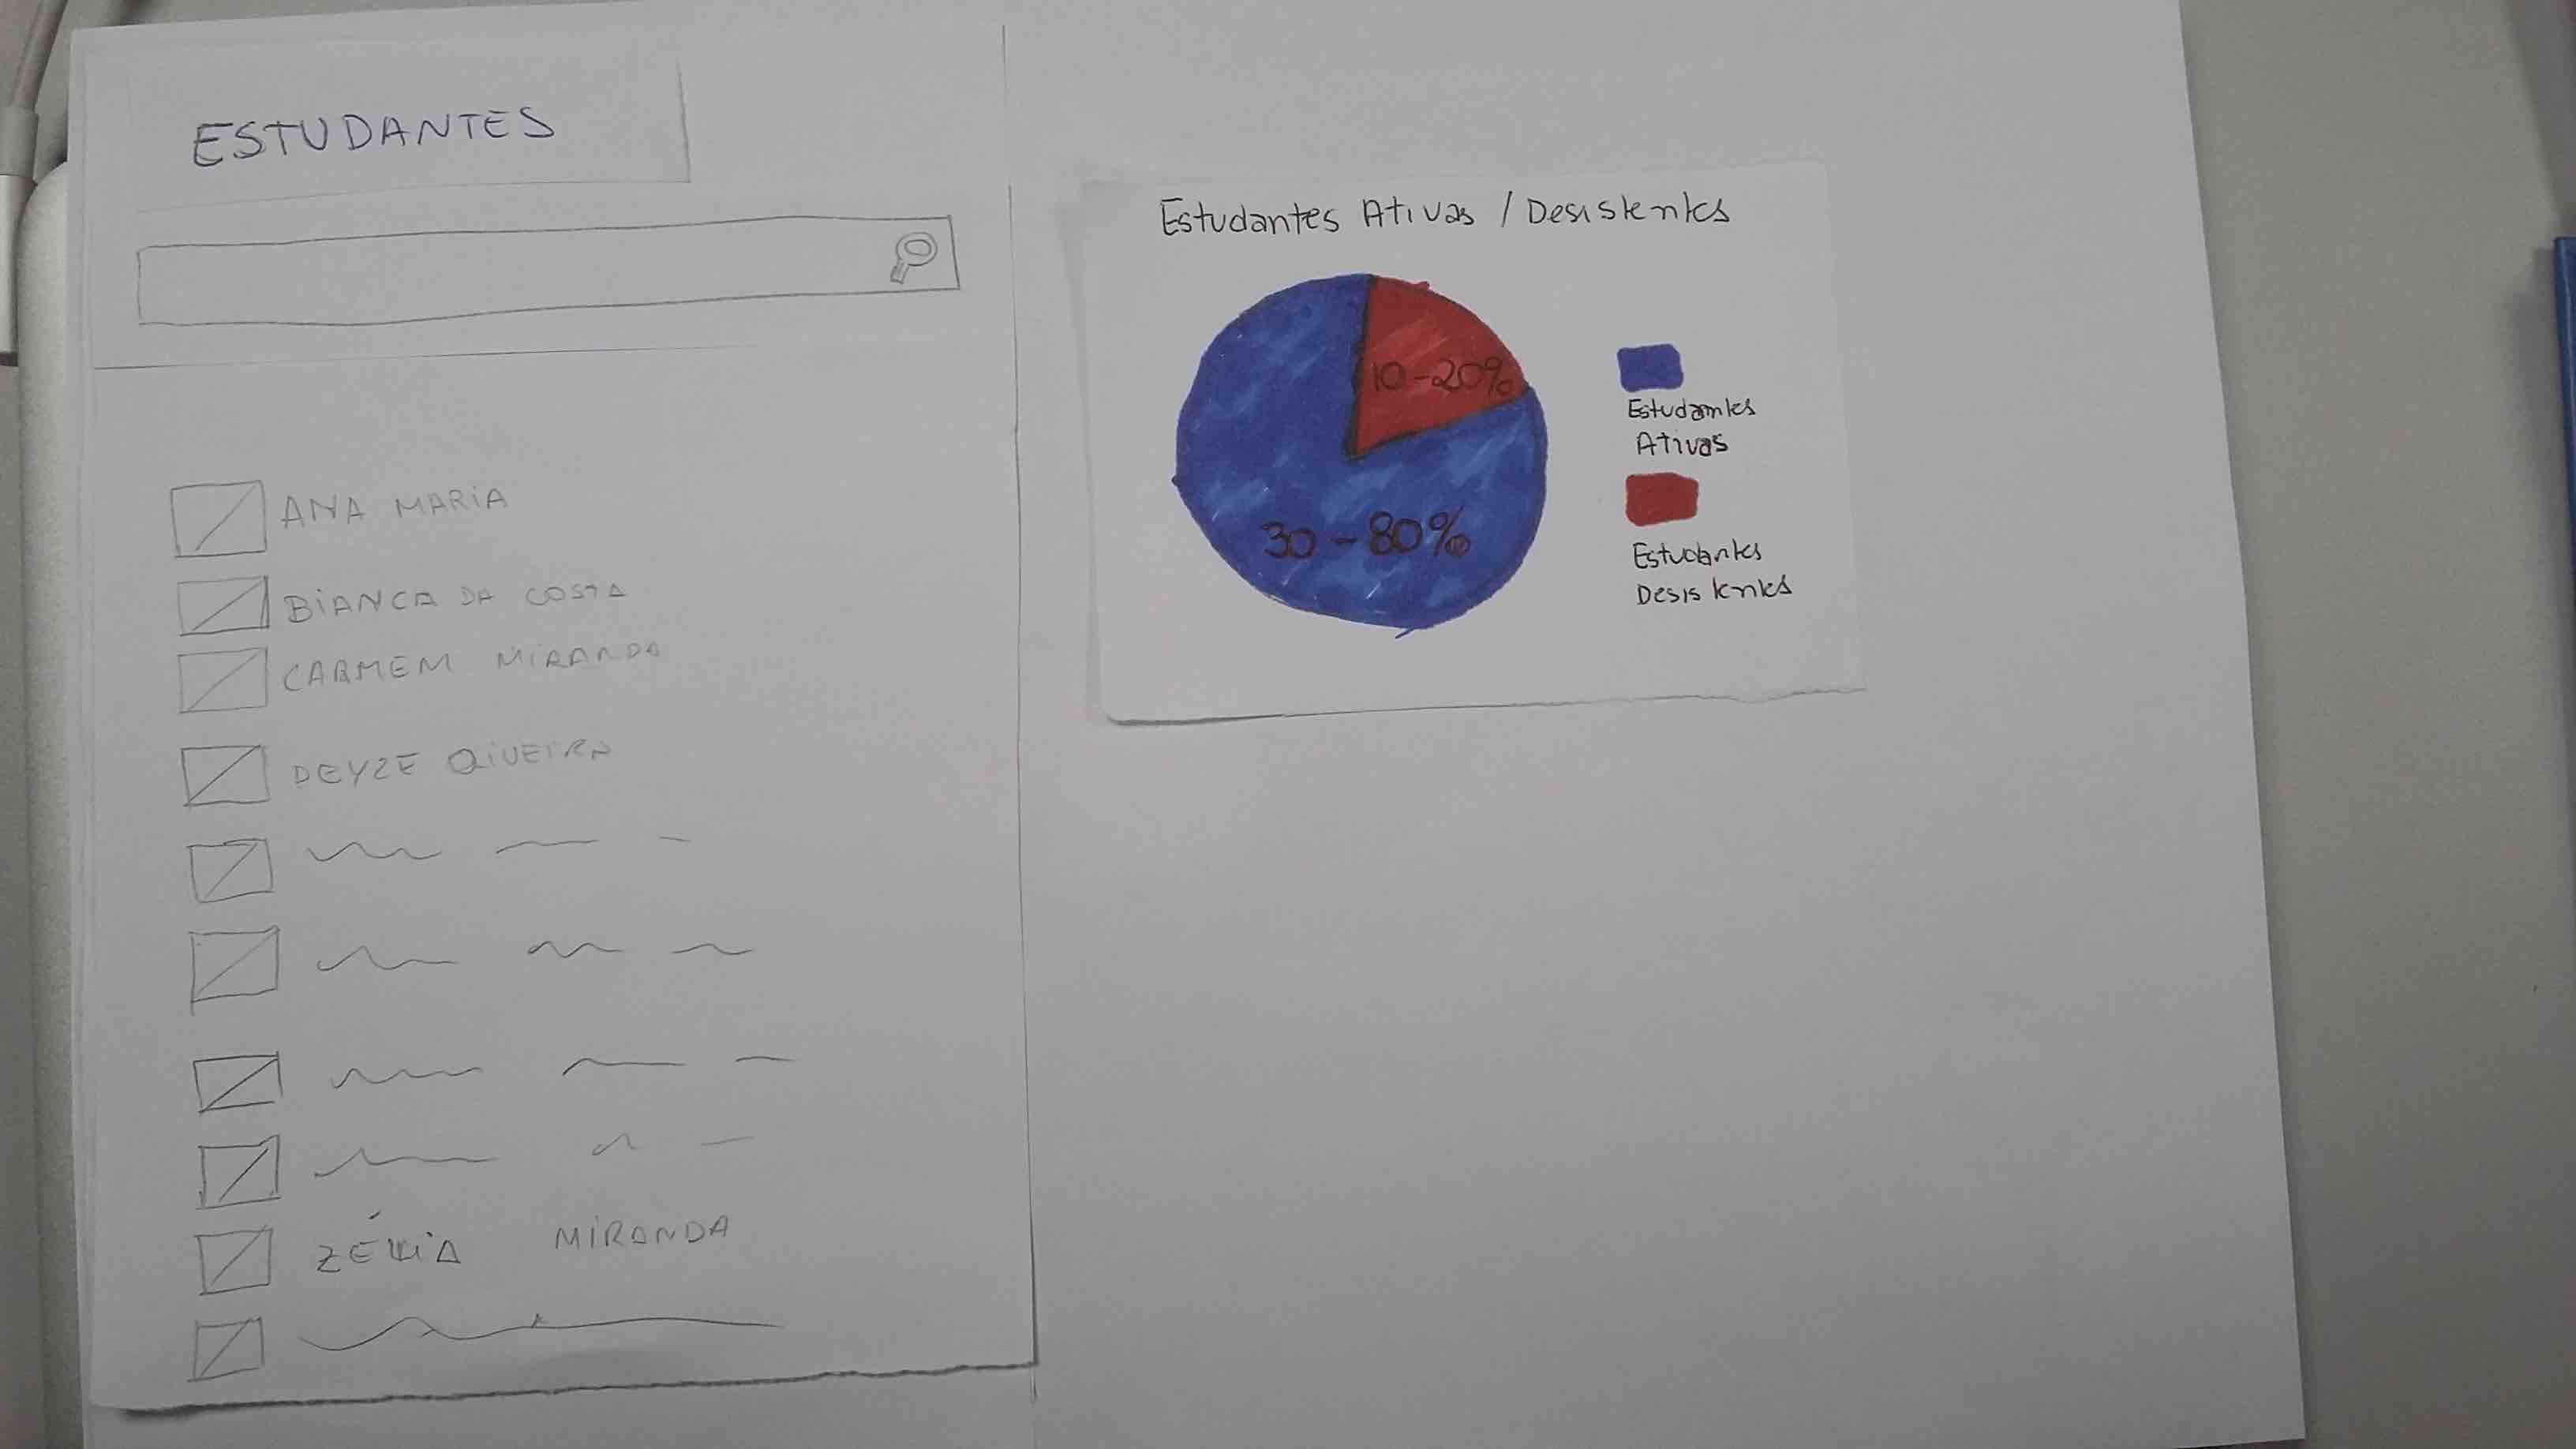 ESTUDANTES
ANA MARIA
BIANCA DA COSTA
CARMEM MIRANDA
DEYZE
ZÉLIA MIRANDA
Estudantes Ativas / Desistentes
10-20%
30-80%
Estudantes
Ativas
Estudantes
Desistentes